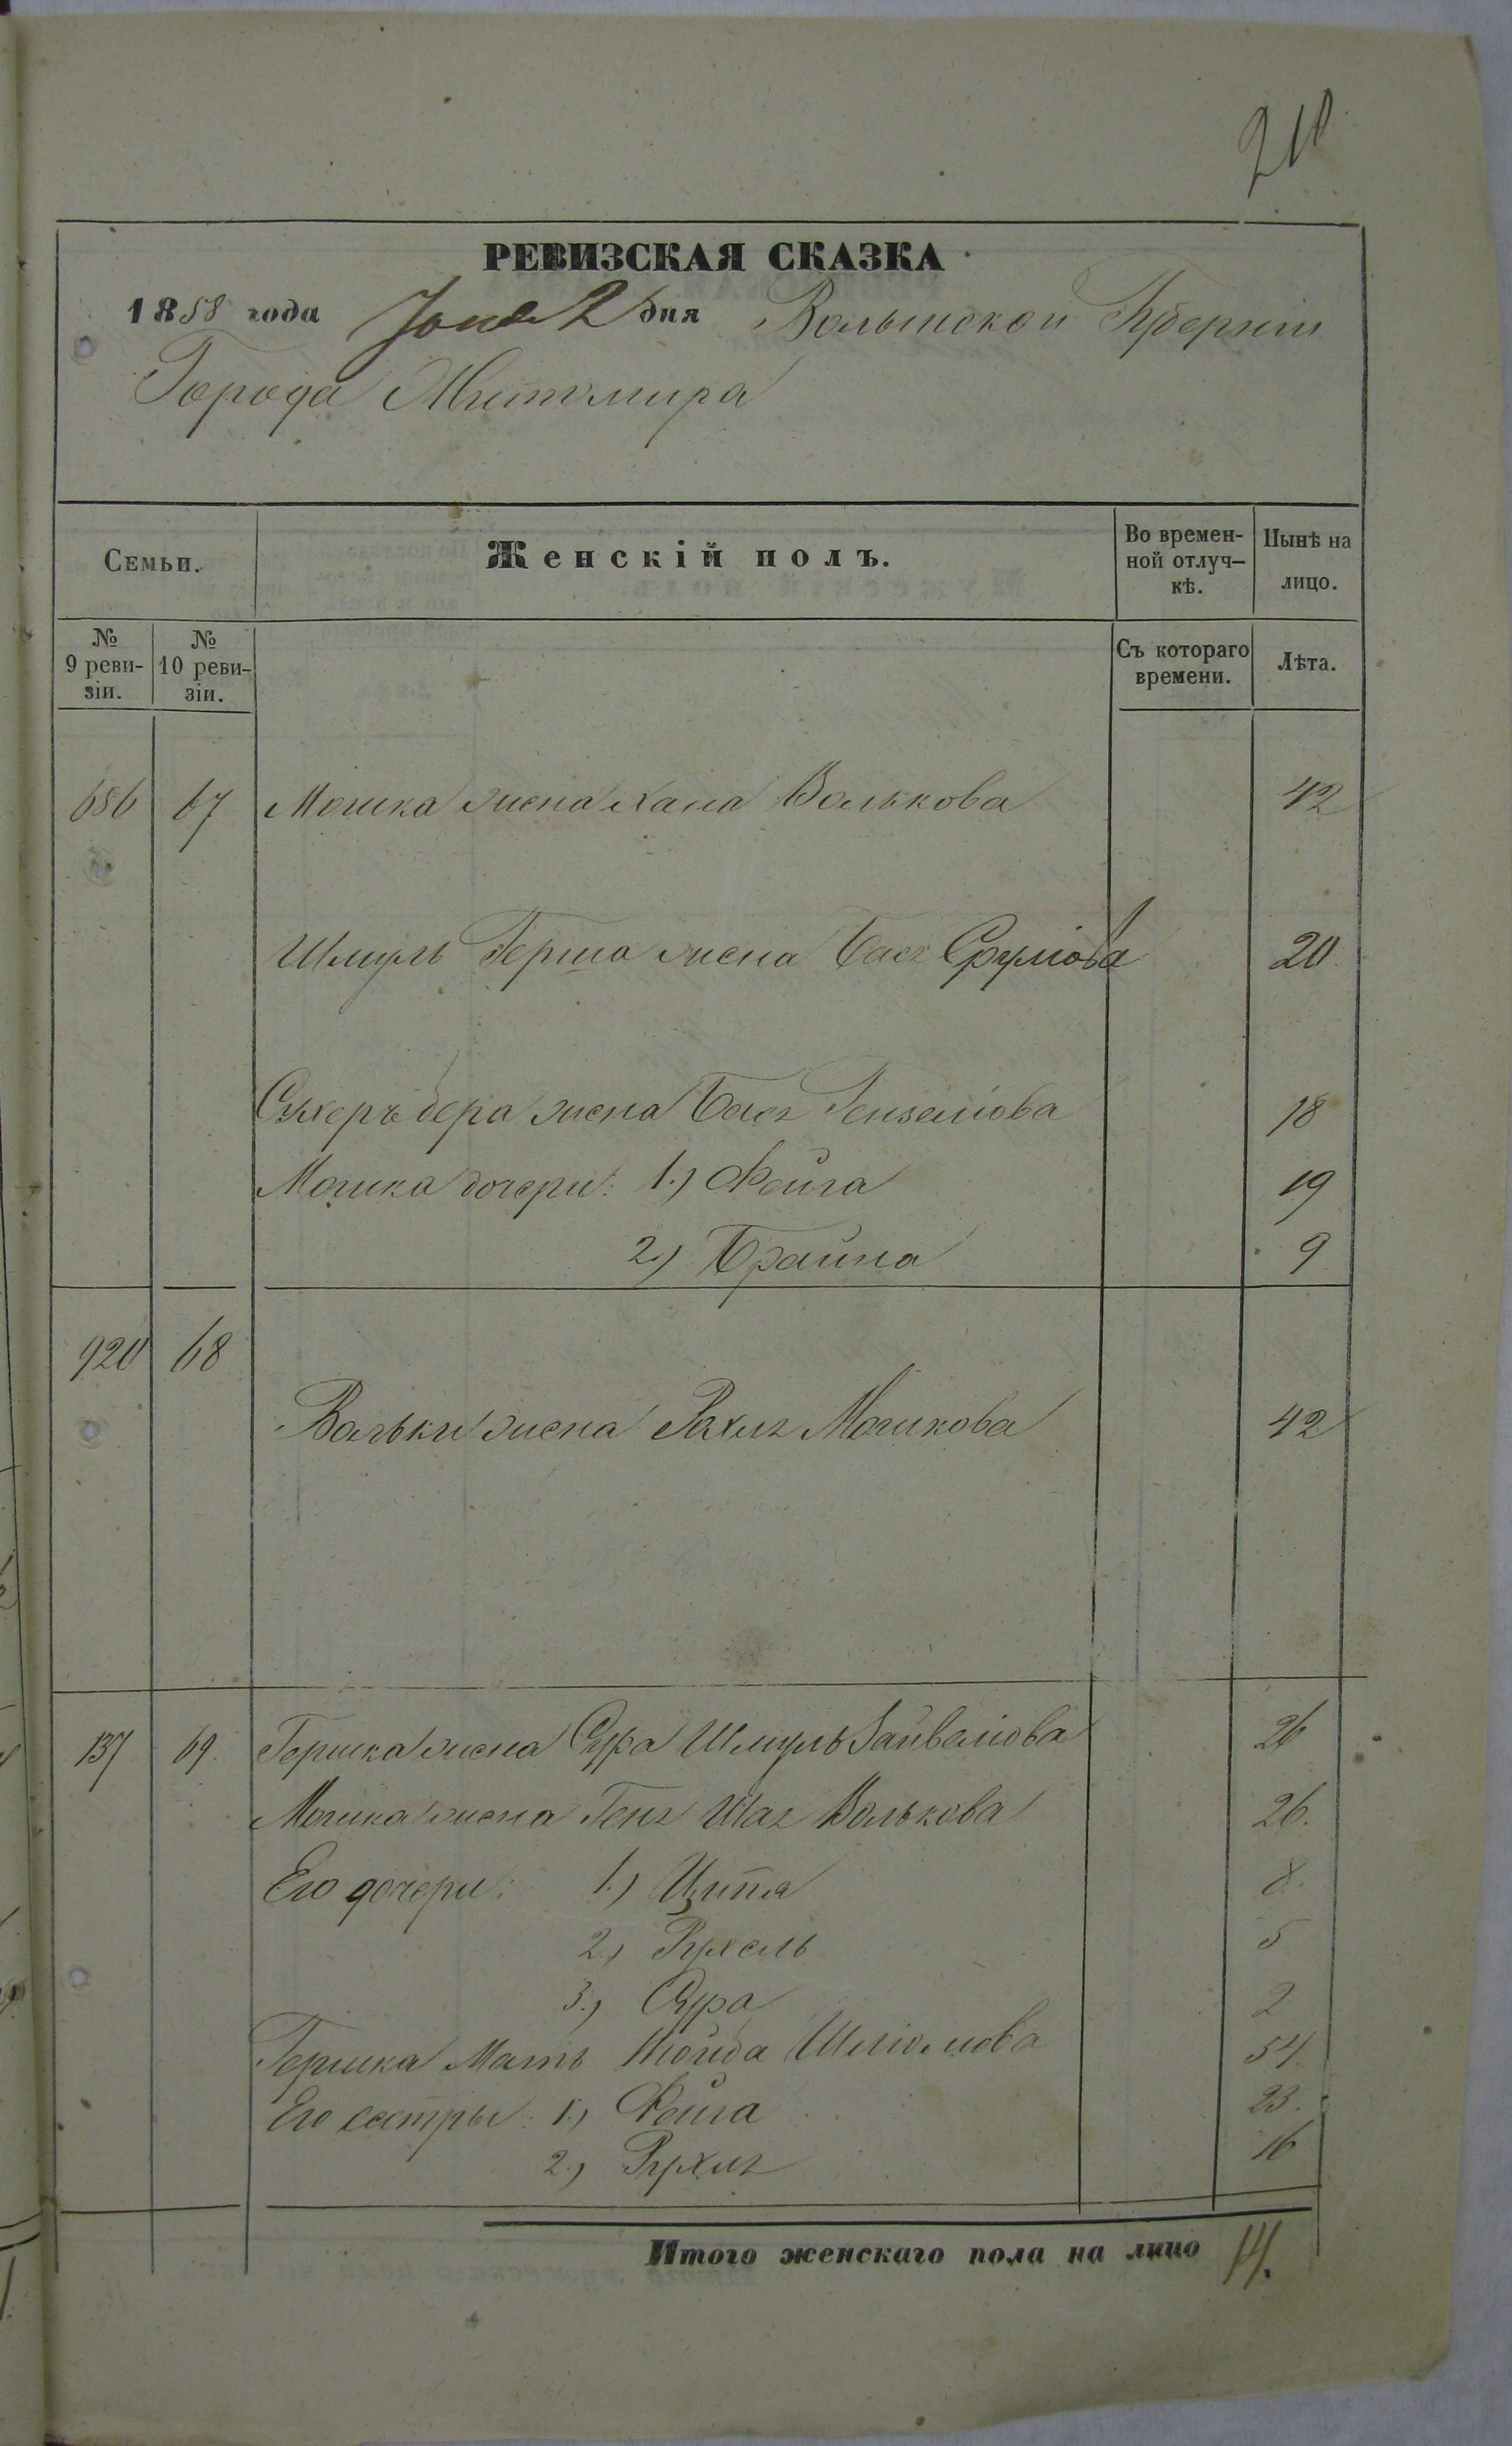 210.
РЕВИЗСКАЯ СКАЗКА
1858 года Іюня 2 дня Волынской Губерніи
Города Житомира
Семьи.
Женскій полъ.
Во времен-
ной отлуч-
кѣ.
Нынѣ на
лицо.
№
9 реви-
зіи.
№
10 реви-
зіи.
Съ котораго
времени.
Лѣта.
686 67 Мошка жена Хана Волькова 42
Шмуль Герша жена Бася Срулiова 20
Сухеръ бера жена Бася Гензелiова 18
Мошка дочери: 1.) Фейга 19
2.) Брайна 9
920 68
Вольки жена Рахля Мошкова 42
137 69. Гершка жена Сура Шмуль Зайвелiова 26
Мошка жена Геня Шая Волькова 26.
Его дочери: 1.) Ципа 8.
2.) Рухель 5
3.) Сура 2
Гершка Мать Шлiомова 54.
Его сестры: 1.) Фейга 23.
2.) Рухля 16
Итого женскаго пола на лицо 14.